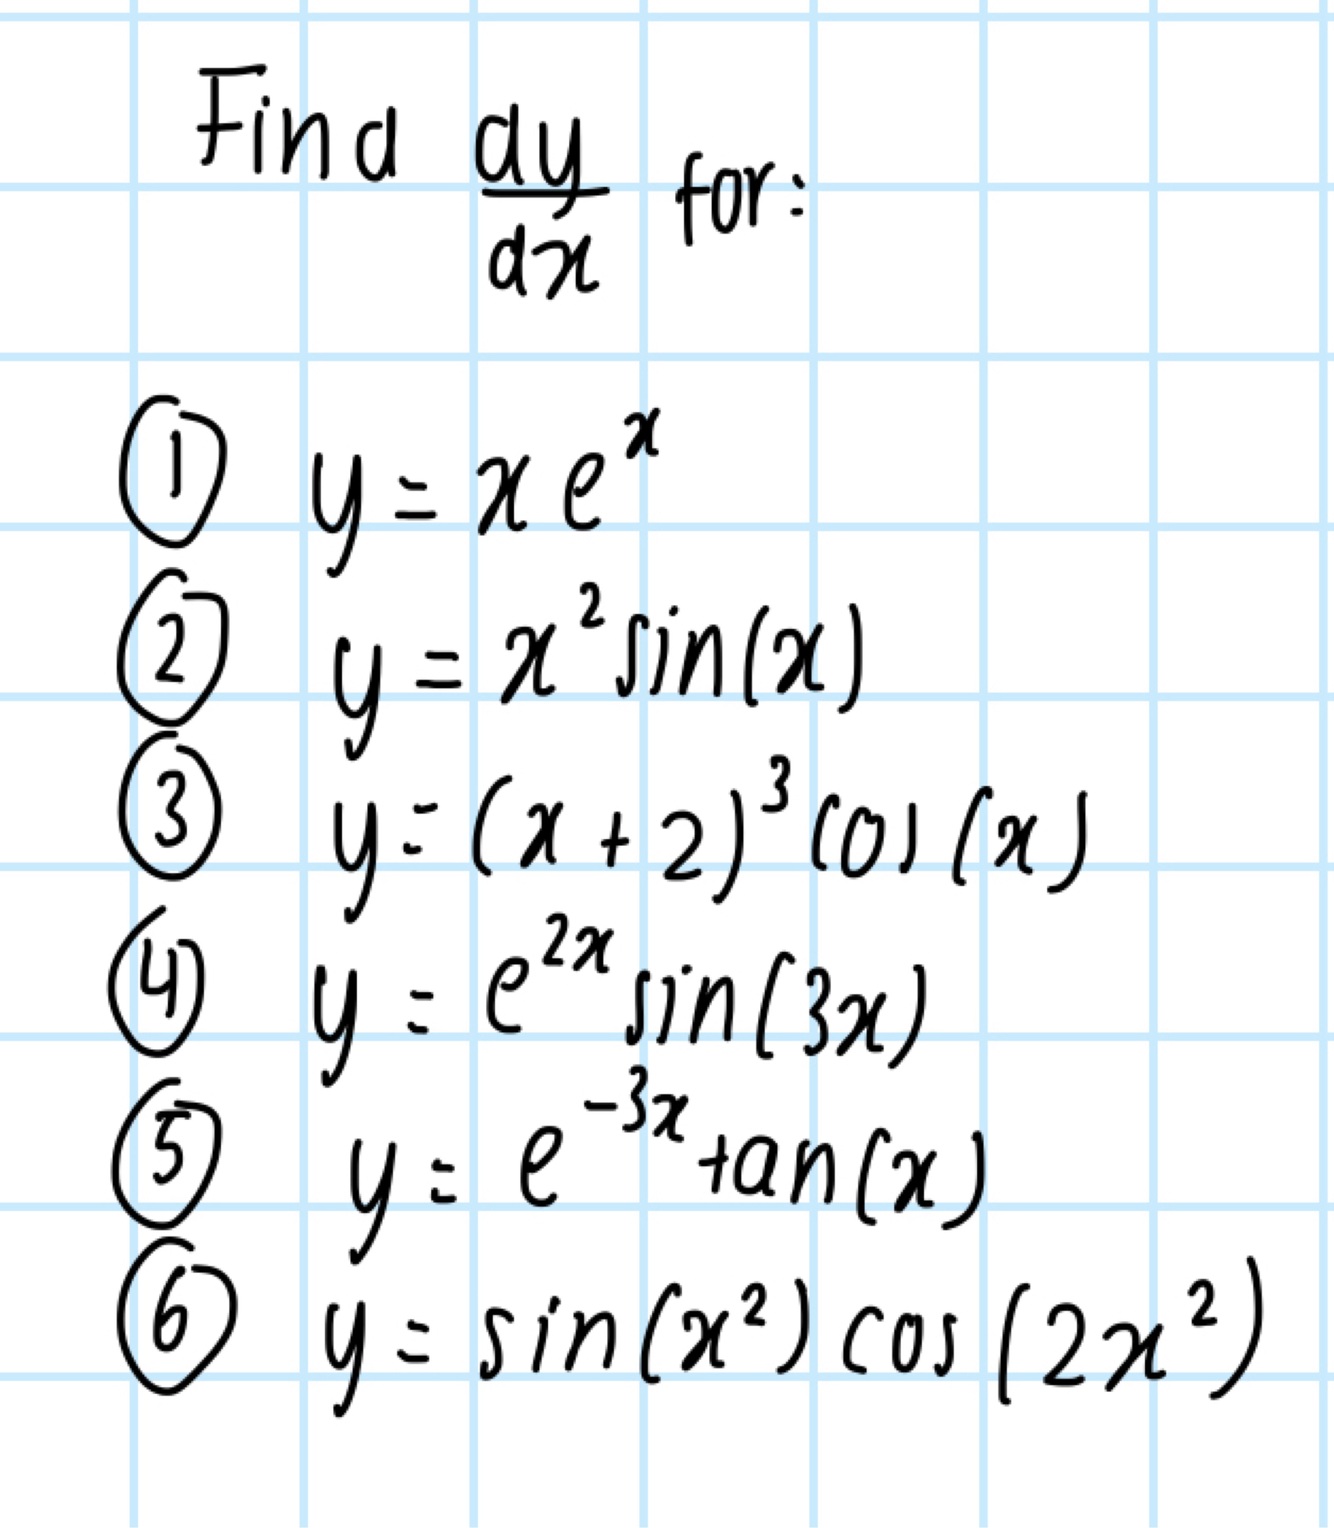 Find dy/dx for:
① y = x eˣ
② y = x² sin(x)
③ y = (x + 2)³ cos(x)
④ y = e²ˣ sin(3x)
⑤ y = e⁻³ˣ tan(x)
⑥ y = sin(x²) cos(2x²)